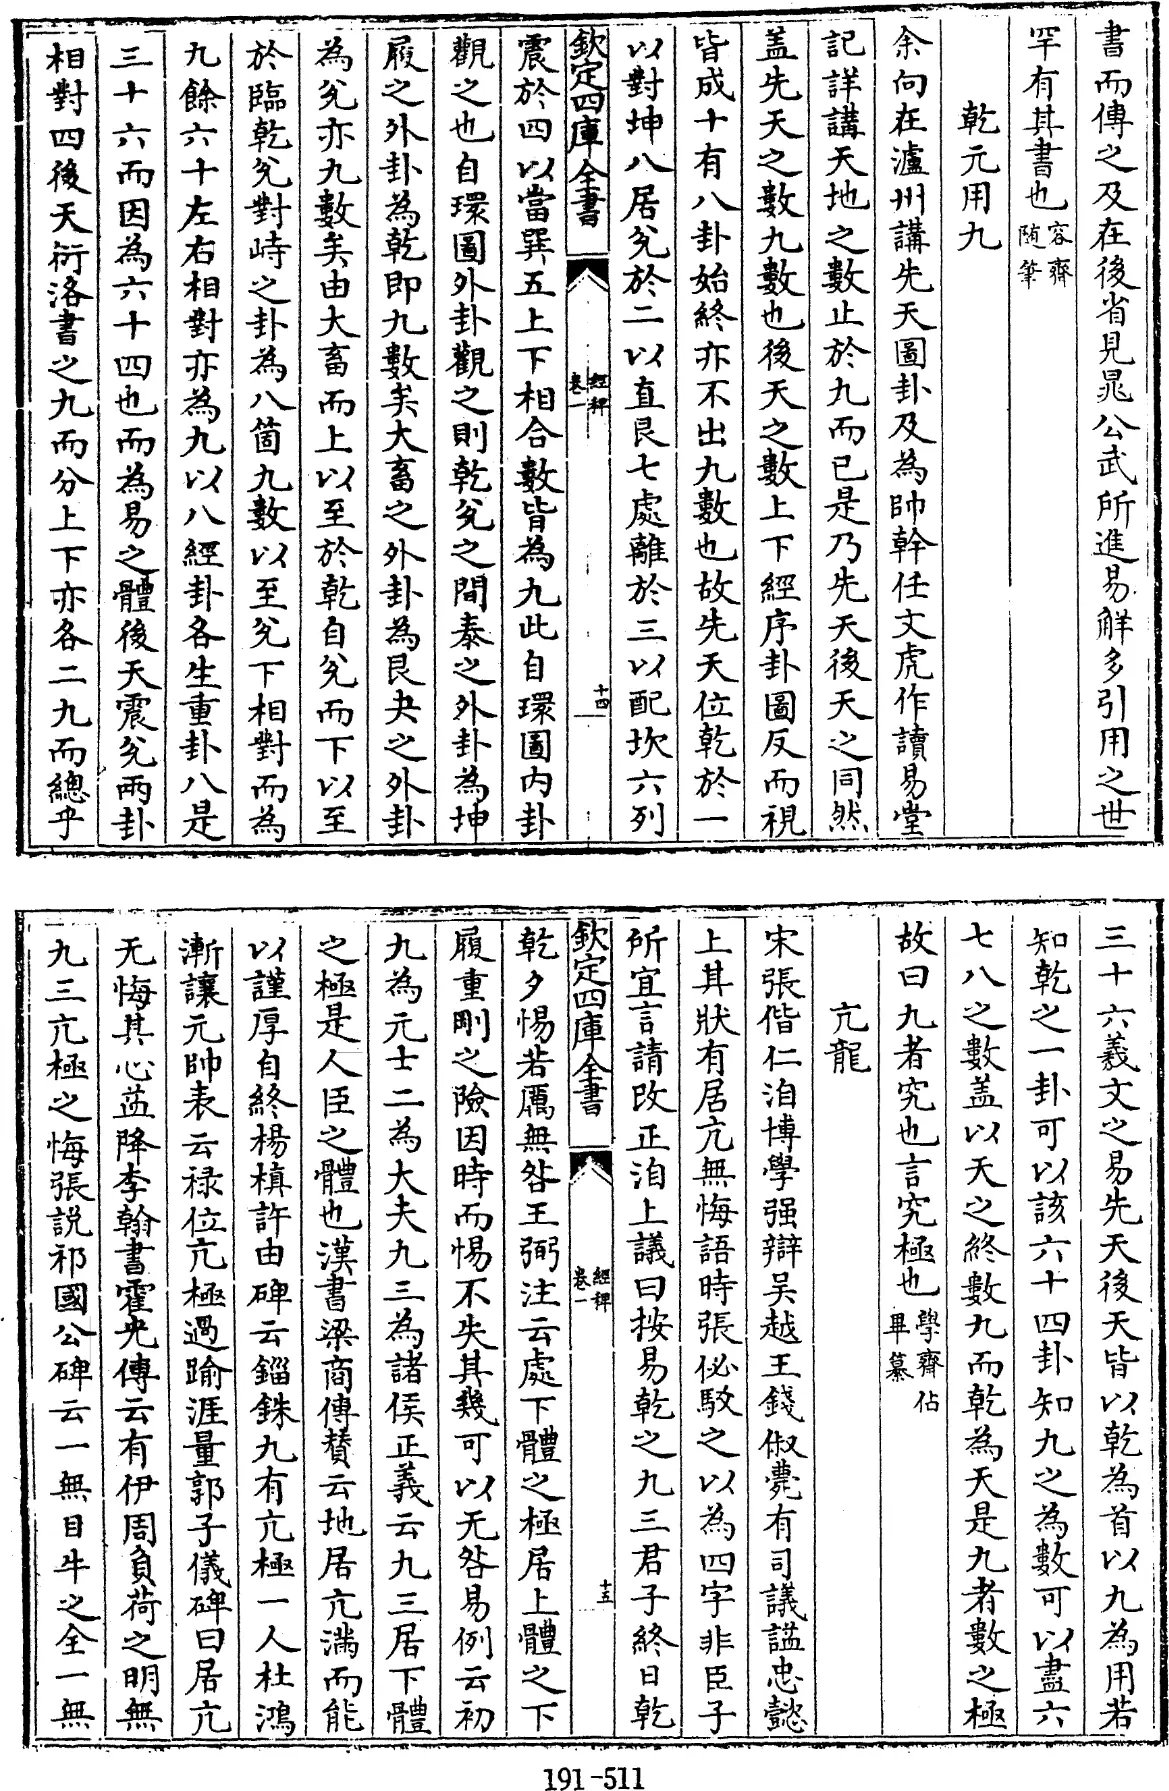 書而傳之及在後省見晁公武所進易解多引用之世
罕有其書也容齋随筆
乾元用九
余向在瀘州講先天圖卦及為帥幹任文虎作讀易堂
記詳講天地之數止於九而已是乃先天後天之同然
盖先天之數九數也後天之數上下經序卦圖反而視
皆成十有八卦始終亦不出九數也故先天位乾於一
以對坤八居兊於二以直艮七處離於三以配坎六列
欽定四庫全書
經稗
卷一
十四
震於四以當巽五上下相合數皆為九此自環圖内卦
觀之也自環圖外卦觀之則乾兊之間泰之外卦為坤
履之外卦為乾即九數矣大畜之外卦為艮夬之外卦
為兊亦九數矣由大畜而上以至於乾自兊而下以至
於臨乾兊對峙之卦為八箇九數以至兊下相對而為
九餘六十左右相對亦為九以八經卦各生重卦八是
三十六而因為六十四也而為易之體後天震兊兩卦
相對四後天衍洛書之九而分上下亦各二九而總乎
三十六羲文之易先天後天皆以乾為首以九為用若
知乾之一卦可以該六十四卦知九之為數可以盡六
七八之數盖以天之終數九而乾為天是九者數之極
故曰九者究也言究極也學齋佔畢纂
亢龍
宋張偕仁洎博學强辯吴越王錢俶薨有司議諡忠懿
上其狀有居亢無悔語時張佖駁之以為四字非臣子
所宜言請改正洎上議曰按易乾之九三君子終日乾
欽定四庫全書
經稗
卷一
十五
乾夕惕若厲無咎王弼注云處下體之極居上體之下
履重剛之險因時而惕不失其幾可以无咎易例云初
九為元士二為大夫九三為諸侯正義云九三居下體
之極是人臣之體也漢書梁商傳賛云地居亢滿而能
以謹厚自終楊植許由碑云錙銖九有亢極一人杜鴻
漸讓元帥表云禄位亢極過踰涯量郭子儀碑曰居亢
无悔其心益降李翰書霍光傳云有伊周負荷之明無
九三亢極之悔張説祁國公碑云一無目牛之全一無
191-511